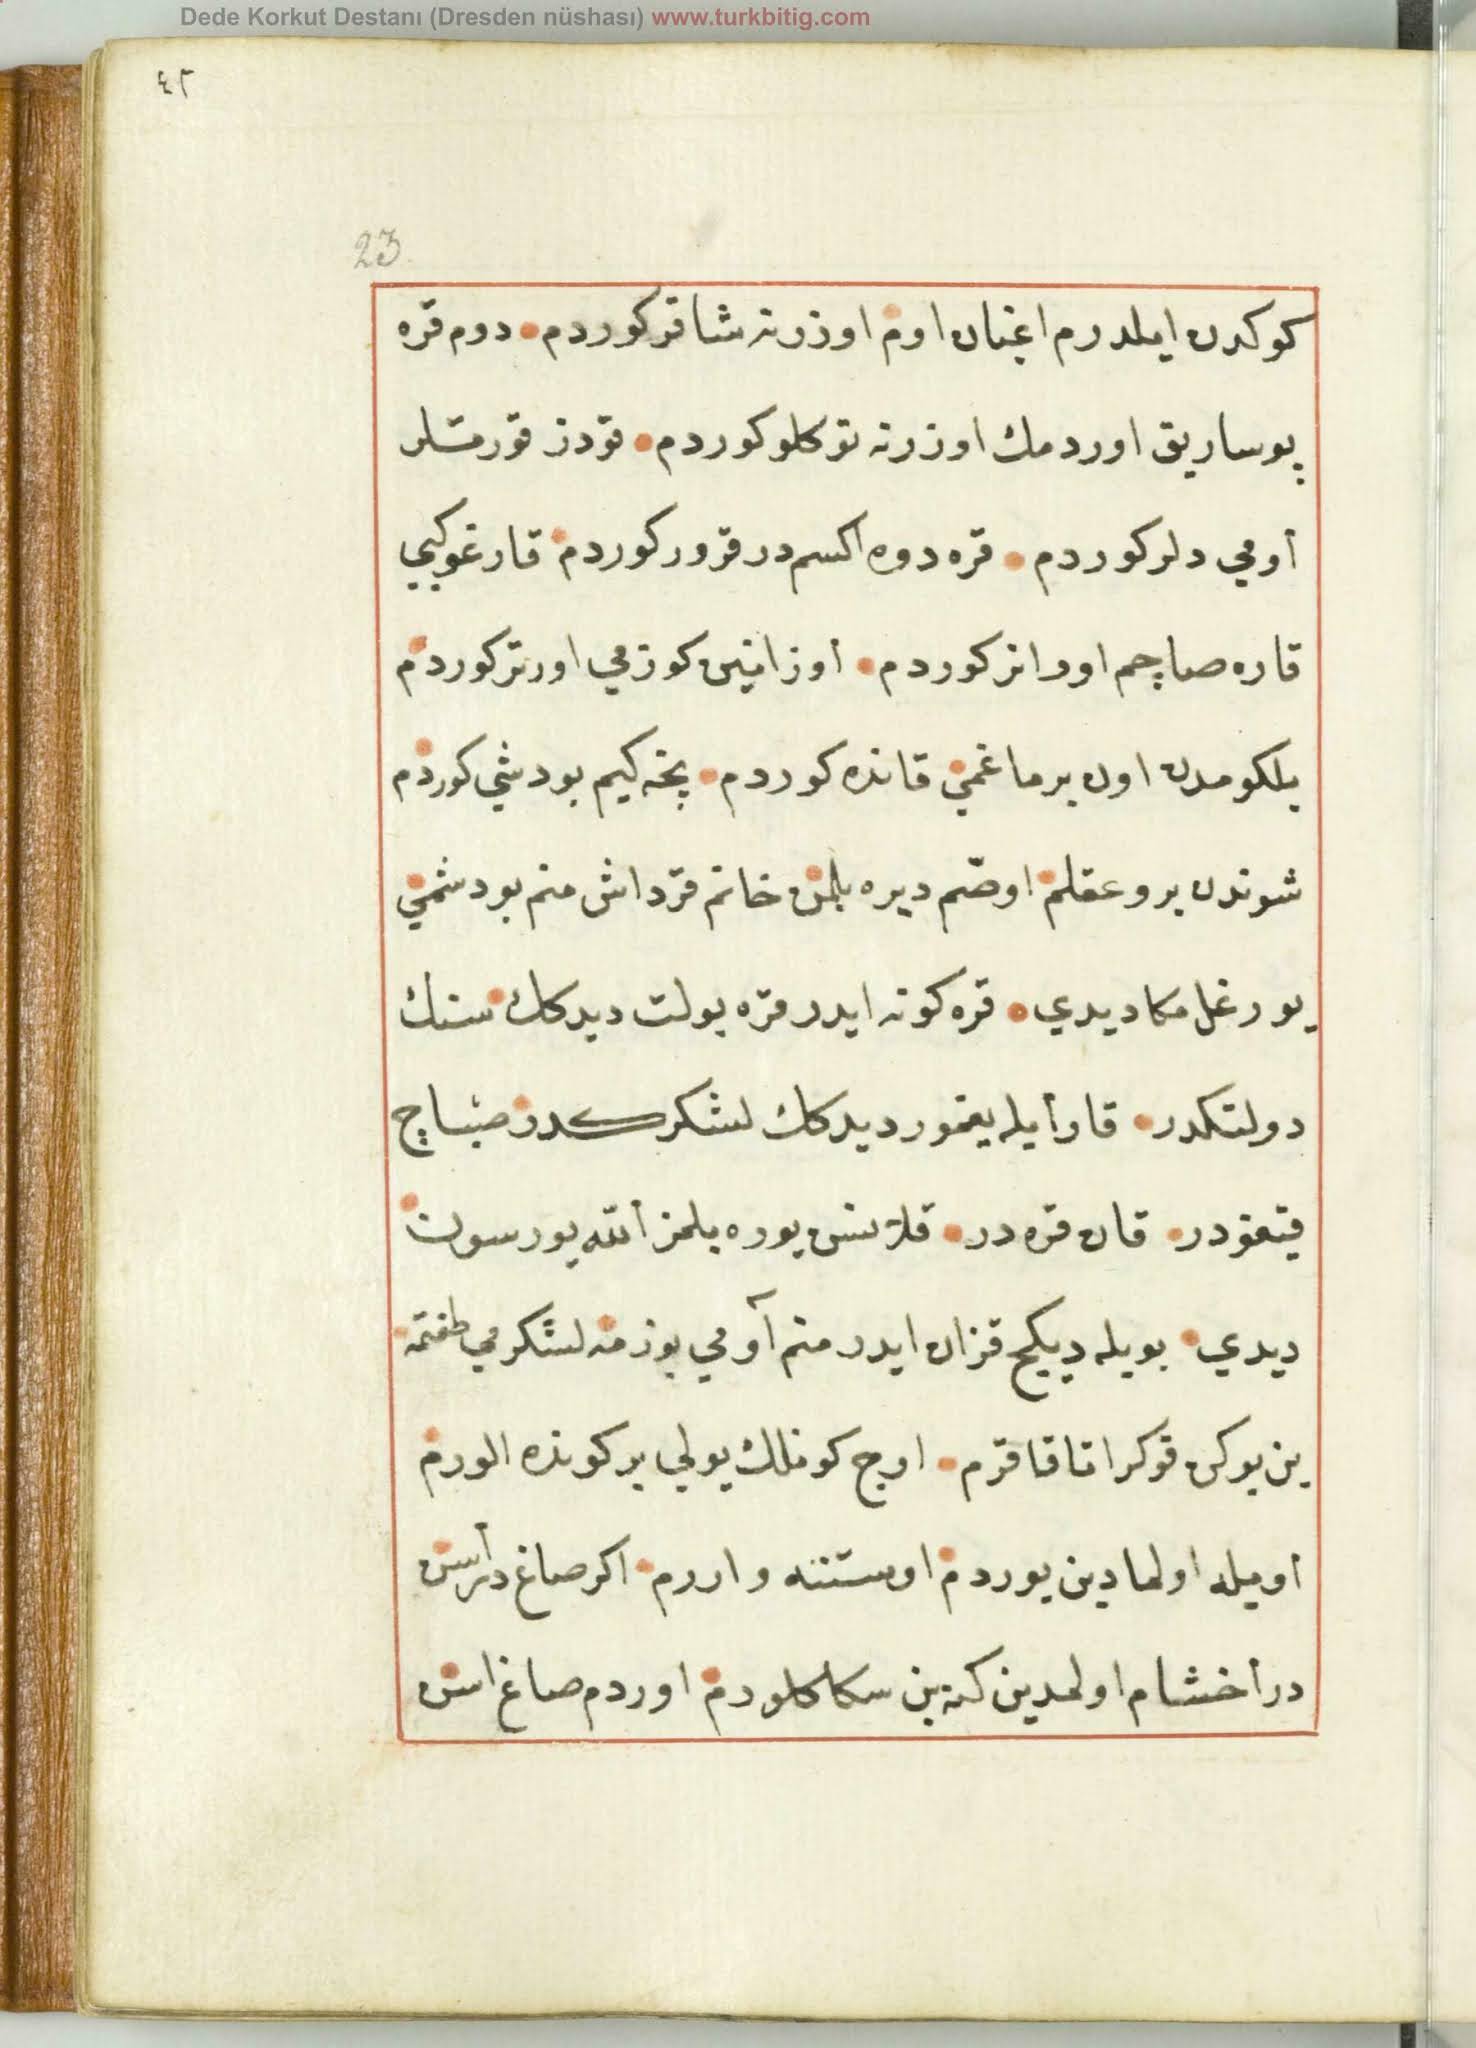 Dede Korkut Destanı (Dresden nüshası) www.turkbitig.com
٤٢
23
كوكدن ايلدرم اغبان اوم اوزرنه شاقر كوردم دوم قره
پوساريق اوردمك اوزرنه توكلو كوردم قودز قورتلر
أومي دلر كوردم قره دوه اكسم در قرور كوردم قارغو كبي
قاره صاچم اورانر كوردم أوزانبن كوزمي اورتر كوردم
بلكومدن اون برماغمي قانده كوردم پخه كيم بو دشي كوردم
شوندن برو عقلم اوصّم ديره بلمن خانم قرداش منم بو دشمي
يورغل مكا ديدي قره كونه ايدر قره بولت ديدكك سنك
دولتكدر قار أيله يغمور ديدكك لشكركدر صاچ
قيغودر قان قره در قلانسن يوره بلمز ألله يورسون
ديدي بويله ديكج قزان ايدر منم آومي بوزمه لشكرمي طغتمه
بن بوكن قوكر اتا قاقرم اوچ كونلك يولي بر كونده الورم
أويله اولمادين يوردم اوستنه واررم اكر صاغ درأسن
در أخشام اولمدين كنه بن سكا كلورم اوردم صاغ اسن